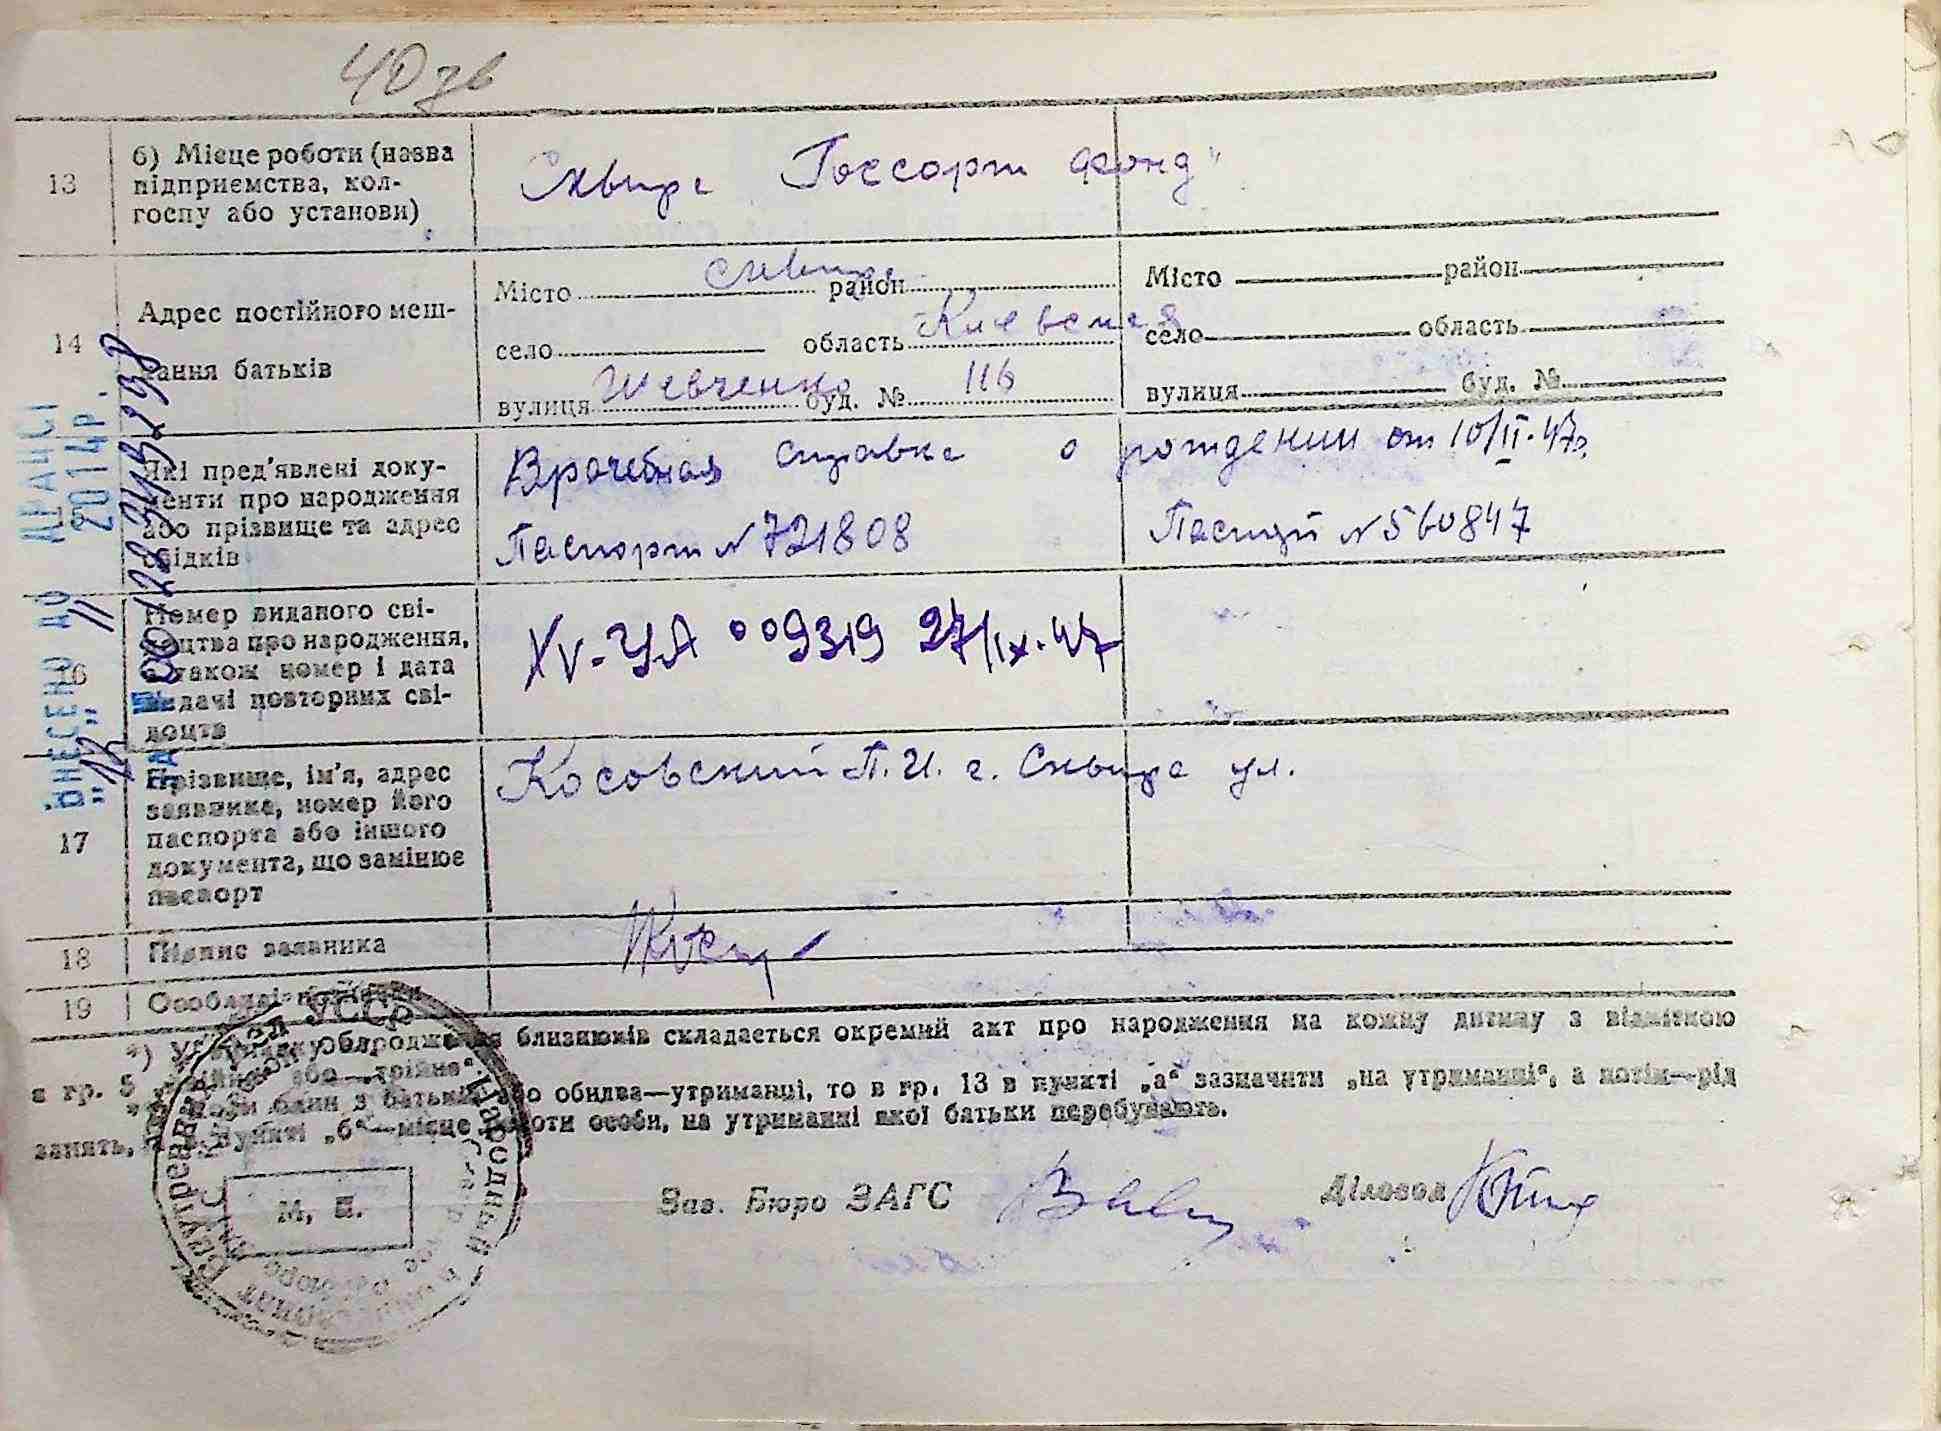 40 зв
13
б) Місце роботи (назва
підприємства, кол-
госпу або установи)
Сквира Госсорт фонд"
14
Адрес постійного меш-
кання батьків
Місто Сквира район
село область Киевская
вулиця Шевченко буд. № 116
Місто район
село область
вулиця буд. №
Які пред'явлені доку-
менти про народження
або прізвище та адрес
свідків
Врачебная справка о рождении от 10/II-47г.
Паспорт N 721808
Паспорт N 560847
16
Номер виданого сві-
доцтва про народження,
а також номер і дата
видачі повторних сві-
доцтв
XV-УА 009319 27/IX-47
17
Прізвище, ім'я, адрес
заявника, номер його
паспорта або іншого
документа, що замінює
паспорт
Косовский П. И. г. Сквира ул.
18
Підпис заявника
19
Особливі
ВНЕСЕНО ДО ДРАЦСГ
2014р.
*) У народження близнюків складається окремий акт про народження на кожну дитину з відміткою
в гр. 5 або „трійня“.
один з батьків або обидва—утриманці, то в гр. 13 в пункті „а“ зазначити „на утриманні“, а потім—рід
занять, а в пункті „б“—місце роботи особи, на утриманні якої батьки перебувають.
М. П.
Зав. Бюро ЗАГС
Діловод
Народный
УССР